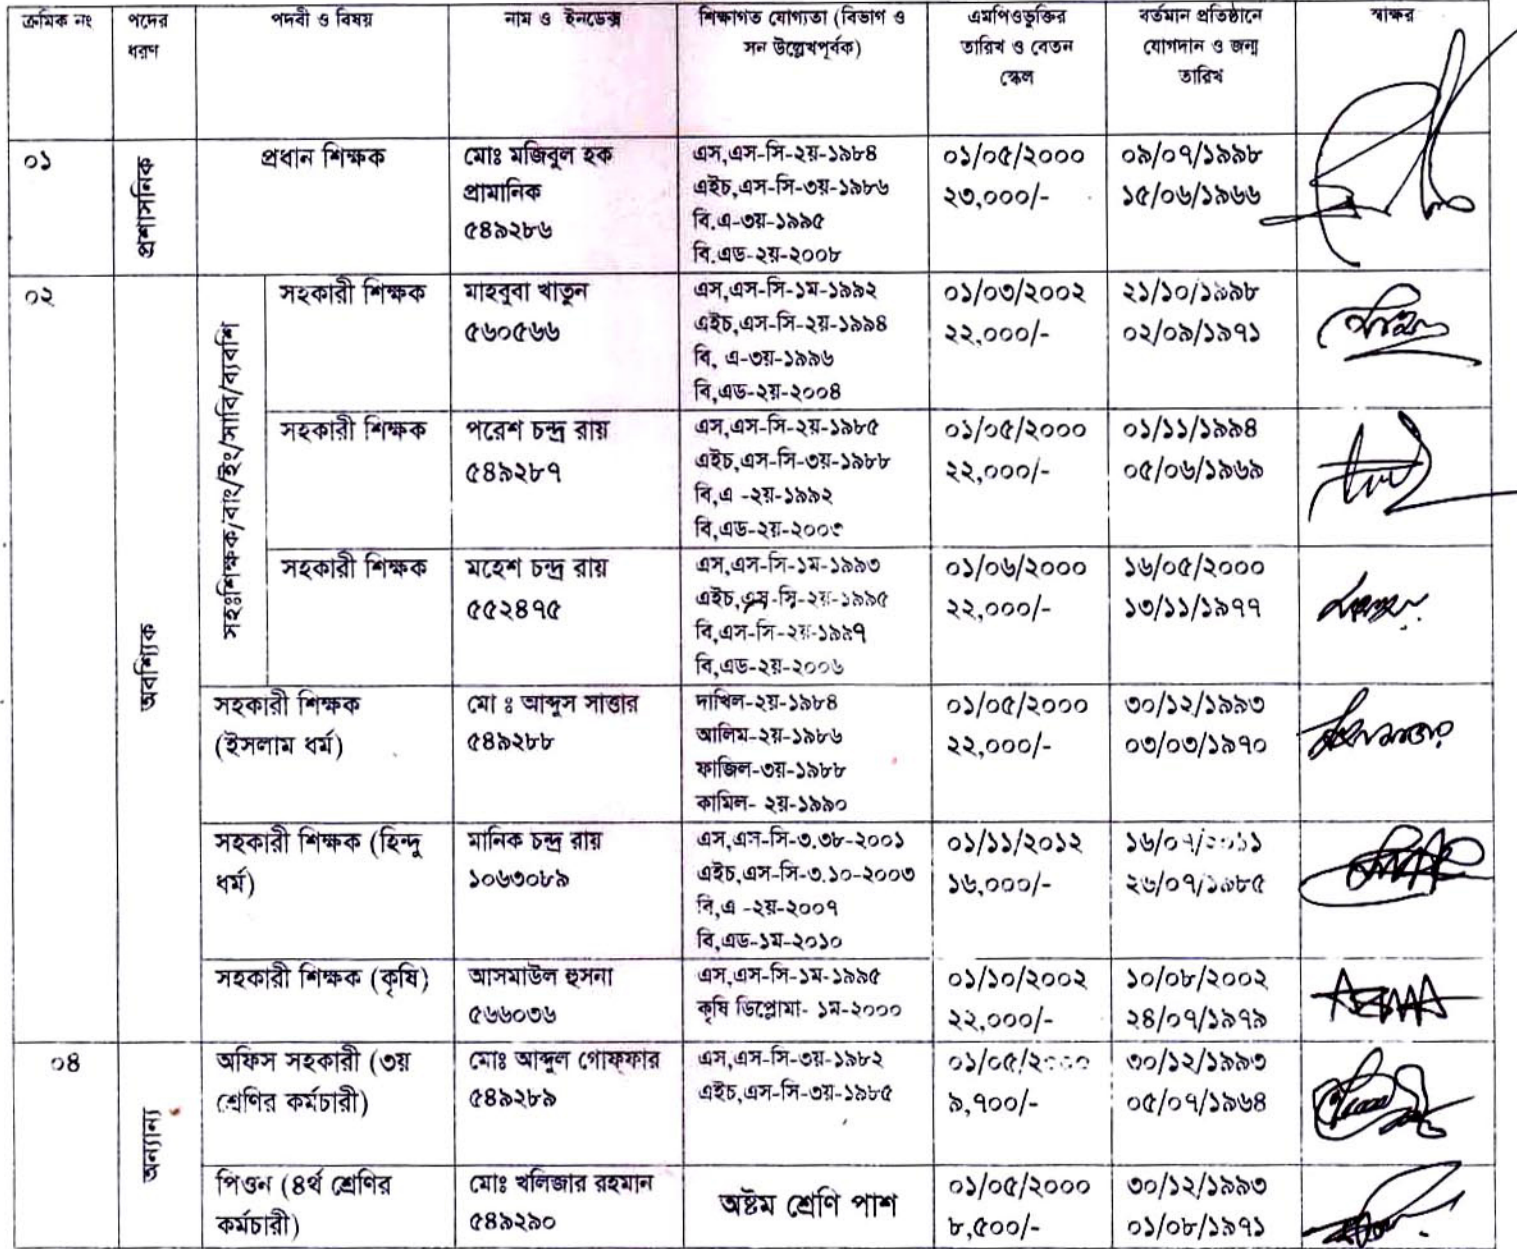 ক্রমিক নং
পদের
ধরণ
পদবী ও বিষয়
নাম ও ইনডেক্স
শিক্ষাগত যোগ্যতা (বিভাগ ও
সন উল্লেখপূর্বক)
এমপিওভুক্তির
তারিখ ও বেতন
স্কেল
বর্তমান প্রতিষ্ঠানে
যোগদান ও জন্ম
তারিখ
স্বাক্ষর
০১
প্রশাসনিক
প্রধান শিক্ষক
মোঃ মজিবুল হক
প্রামানিক
৫৪৯২৮৬
এস,এস-সি-২য়-১৯৮৪
এইচ,এস-সি-৩য়-১৯৮৬
বি.এ-৩য়-১৯৯৫
বি.এড-২য়-২০০৮
০১/০৫/২০০০
২৩,০০০/-
০৯/০৭/১৯৯৮
১৫/০৬/১৯৬৬
০২
অবশ্যিক
সহঃশিক্ষক/বাং/ইং/সাবি/ব্যবশি
সহকারী শিক্ষক
মাহবুবা খাতুন
৫৬০৫৬৬
এস,এস-সি-১ম-১৯৯২
এইচ,এস-সি-২য়-১৯৯৪
বি, এ-৩য়-১৯৯৬
বি,এড-২য়-২০০৪
০১/০৩/২০০২
২২,০০০/-
২১/১০/১৯৯৮
০২/০৯/১৯৭১
সহকারী শিক্ষক
পরেশ চন্দ্র রায়
৫৪৯২৮৭
এস,এস-সি-২য়-১৯৮৫
এইচ,এস-সি-৩য়-১৯৮৮
বি,এ -২য়-১৯৯২
বি,এড-২য়-২০০৩
০১/০৫/২০০০
২২,০০০/-
০১/১১/১৯৯৪
০৫/০৬/১৯৬৯
সহকারী শিক্ষক
মহেশ চন্দ্র রায়
৫৫২৪৭৫
এস,এস-সি-১ম-১৯৯৩
এইচ,এস-সি-২য়-১৯৯৫
বি,এস-সি-২য়-১৯৯৭
বি,এড-২য়-২০০৬
০১/০৬/২০০০
২২,০০০/-
১৬/০৫/২০০০
১৩/১১/১৯৭৭
সহকারী শিক্ষক
(ইসলাম ধর্ম)
মো ঃ আব্দুস সাত্তার
৫৪৯২৮৮
দাখিল-২য়-১৯৮৪
আলিম-২য়-১৯৮৬
ফাজিল-৩য়-১৯৮৮
কামিল- ২য়-১৯৯০
০১/০৫/২০০০
২২,০০০/-
৩০/১২/১৯৯৩
০৩/০৩/১৯৭০
সহকারী শিক্ষক (হিন্দু
ধর্ম)
মানিক চন্দ্র রায়
১০৬৩০৮৯
এস,এস-সি-৩.৩৮-২০০১
এইচ,এস-সি-৩.১০-২০০৩
বি,এ -২য়-২০০৭
বি,এড-১ম-২০১০
০১/১১/২০১২
১৬,০০০/-
১৬/০৭/২০১১
২৬/০৭/১৯৮৫
সহকারী শিক্ষক (কৃষি)
আসমাউল হুসনা
৫৬৬০৩৬
এস,এস-সি-১ম-১৯৯৫
কৃষি ডিপ্লোমা- ১ম-২০০০
০১/১০/২০০২
২২,০০০/-
১০/০৮/২০০২
২৪/০৭/১৯৭৯
০৪
অন্যান্য
অফিস সহকারী (৩য়
শ্রেণির কর্মচারী)
মোঃ আব্দুল গোফ্ফার
৫৪৯২৮৯
এস,এস-সি-৩য়-১৯৮২
এইচ,এস-সি-৩য়-১৯৮৫
০১/০৫/২০০০
৯,৭০০/-
৩০/১২/১৯৯৩
০৫/০৭/১৯৬৪
পিওন (৪র্থ শ্রেণির
কর্মচারী)
মোঃ খলিজার রহমান
৫৪৯২৯০
অষ্টম শ্রেণি পাশ
০১/০৫/২০০০
৮,৫০০/-
৩০/১২/১৯৯৩
০১/০৮/১৯৭১